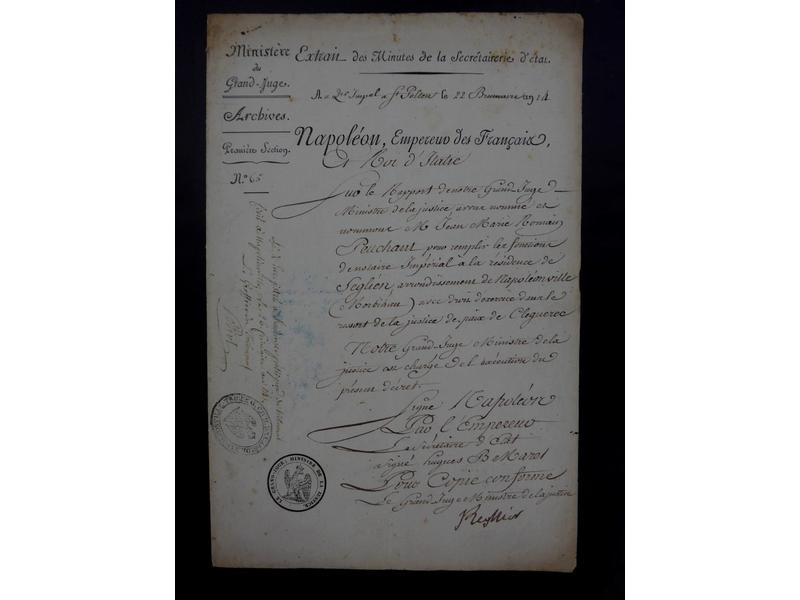 Ministère
du
Grand-Juge.
Archives.
Première Section.
N.º 65
Extrait des Minutes de la Secrétairerie d'état.
Au Qer Impal à St Polten le 22 Brumaire an 14
Napoléon, Empereur des Français,
Et Roi d'Italie
Sur le Rapport de notre Grand Juge
Ministre de la justice avons nommé et
nommons M. Jean Marie Romain
Pouchant pour remplir les fonctions
de notaire Impérial à la résidence de
Seglien, arrondissement de Napoléonville
(Morbihan) avec droit d'exercice dans le
ressort de la justice de paix de Cleguerec
Notre Grand-Juge Ministre de la
justice est chargé de l'exécution du
présent décret.
Signé Napoléon
Par l'Empereur
Le Secrétaire d'Etat
a signé hugues B Maret
Pour Copie conforme
Le Grand Juge Ministre de la justice
Regnier
LE GRAND JUGE MINISTRE DE LA JUSTICE